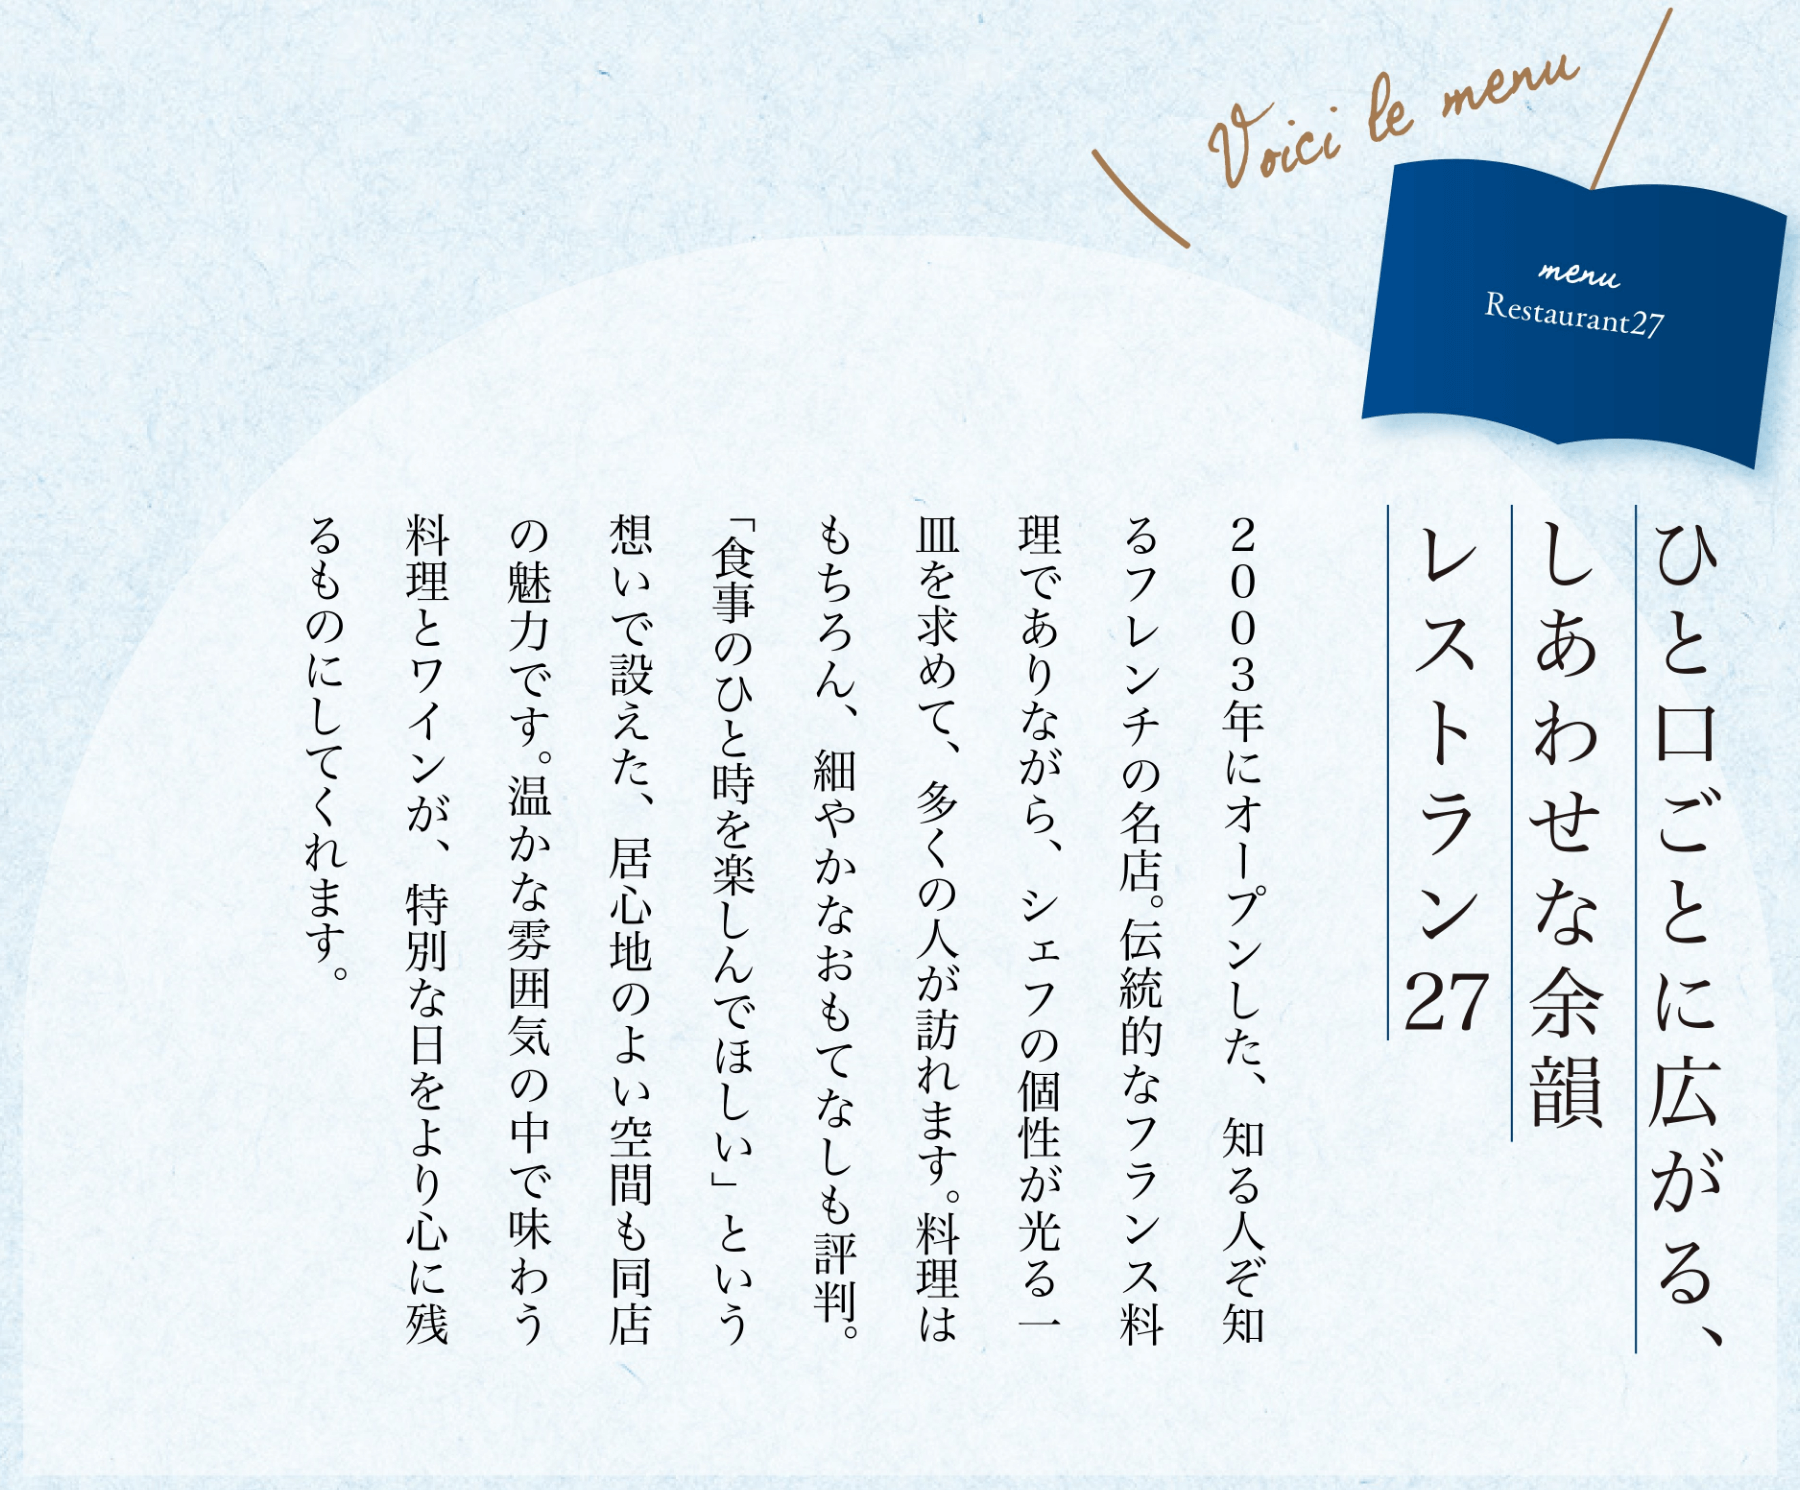 Voici le menu
menu
Restaurant27
ひと口ごとに広がる、
しあわせな余韻
レストラン27
２００３年にオープンした、知る人ぞ知
るフレンチの名店。伝統的なフランス料
理でありながら、シェフの個性が光る一
皿を求めて、多くの人が訪れます。料理は
もちろん、細やかなおもてなしも評判。
「食事のひと時を楽しんでほしい」という
想いで設えた、居心地のよい空間も同店
の魅力です。温かな雰囲気の中で味わう
料理とワインが、特別な日をより心に残
るものにしてくれます。